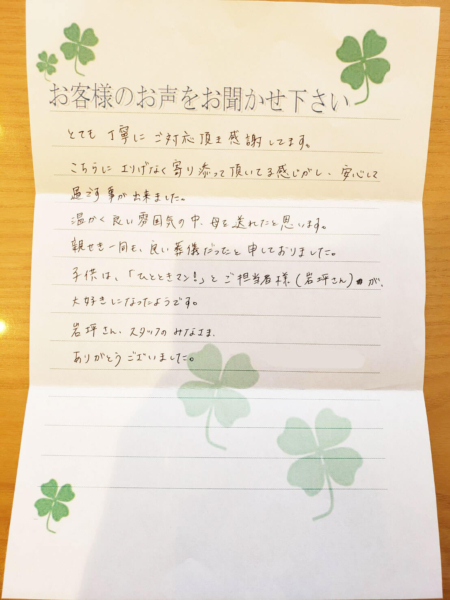 お客様のお声をお聞かせ下さい
とても丁寧にご対応頂き感謝してます。
こちらにさりげなく寄り添って頂いてる感じがし、安心して
過ごす事が出来ました。
温かく良い雰囲気の中、母を送れたと思います。
親せき一同も、良い葬儀だったと申しておりました。
子供は、「ひとときマン!」とご担当者様(岩坪さん)が、
大好きになったようです。
岩坪さん、スタッフのみなさま、
ありがとうございました。